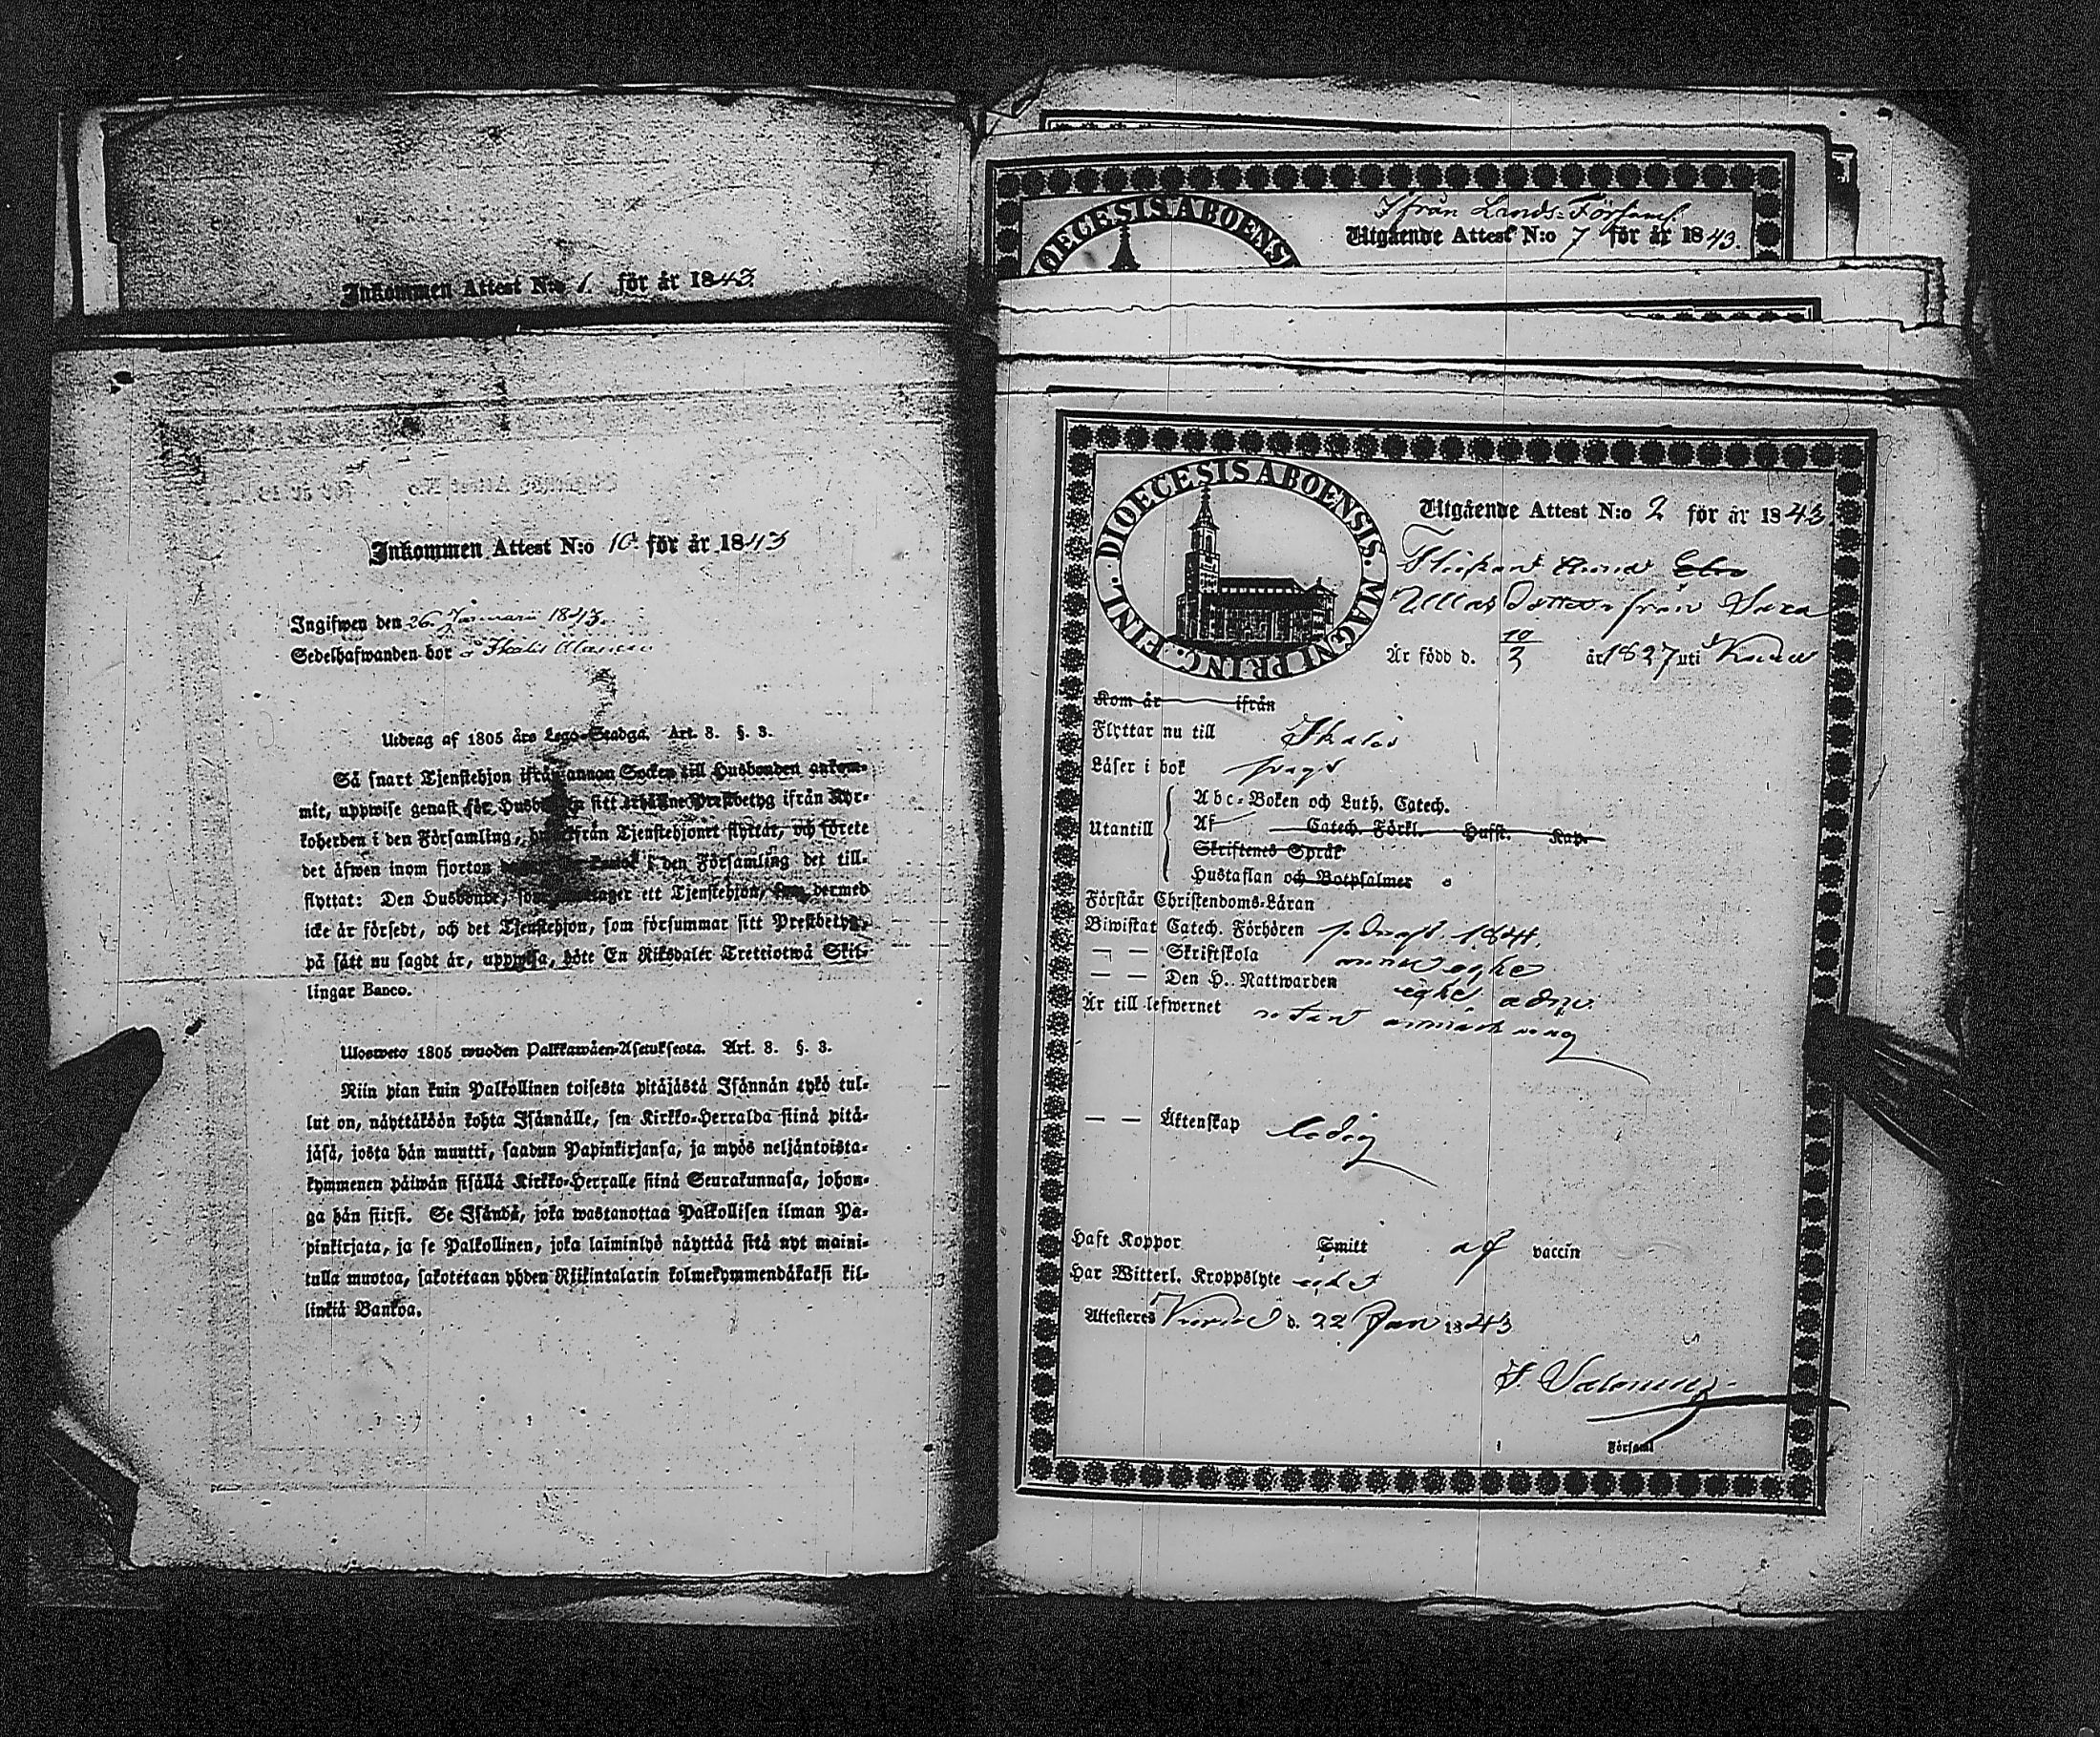 Inkommen Attest N:o 1. för år 1843.
Inkommen Attest N:o 10. för år 1843
Ingifwen den 26. Januarii 1843.
Sedelhafwanden bor i Ikalis
Utdrag af 1805 års Lego-Stadga. Art. 8. §. 3.
Så snart Tjenstehjon ifrån annan Socken till Husbonden ankom-
mit, uppwise genast för Husbonden sitt erhållne Prestbetyg ifrån Kyr-
koherden i den Församling, hwarifrån Tjenstehjonet flyttat, och förete
det äfwen inom fjorton i den Församling det till-
flyttat: Den Husbonde, som antager ett Tjenstehjon, som dermed
icke är försedt, och det Tjenstehjon, som försummar sitt Prestbetyg,
på sätt nu sagdt är, uppwisa, böte En Riksdaler Trettiotwå Skil-
lingar Banco.
Ulosweto 1805 wuoden Palkkawäen-Asetuksesta. Art. 8. §. 3.
Niin pian kuin Palkollinen toisesta pitäjästä Isännän tykö tul-
lut on, näyttäköön kohta Isännälle, sen Kirkko-Herralda siinä pitä-
jäsä, josta hän muutti, saadun Papinkirjansa, ja myös neljäntoista-
kymmenen päiwän sisällä Kirkko-Herralle siinä Seurakunnasa, johon-
ga hän siirsi. Se Isändä, joka wastanottaa Palkollisen ilman Pa-
pinkirjata, ja se Palkollinen, joka laiminlyö näyttää sitä nyt maini-
tulla muotoa, sakotetaan yhden Riikintalarin kolmekymmendäkaksi kil-
linkiä Bankoa.
DIOECESIS ABOENSI
Ifrån Lands-Församl.
Utgående Attest N:o 7 för år 1843.
DIOECESIS ABOENSIS. MAGNI PRINC. FINL.
Utgående Attest N:o 2 för år 1843.
Flickan
dotter från
Är född d. 10/3 år 1827 uti
Kom år ifrån
Flyttar nu till Ikalis
Läser i bok
Utantill
Abc-Boken och Luth. Catech.
Af Catech. Förkl. Husst. Kap.
Skriftenes Språk
Hustaflan och Botpsalmer
Förstår Christendoms-Läran
Biwistat Catech. Förhören
— — Skriftskola
— — Den H. Nattwarden
Är till lefwernet utan anmärkning
— — Äktenskap ledig
Haft Koppor Smitt af vaccin
Har Witterl. Kroppslyte
Attesteres d. 22 Jan 1843
Församl